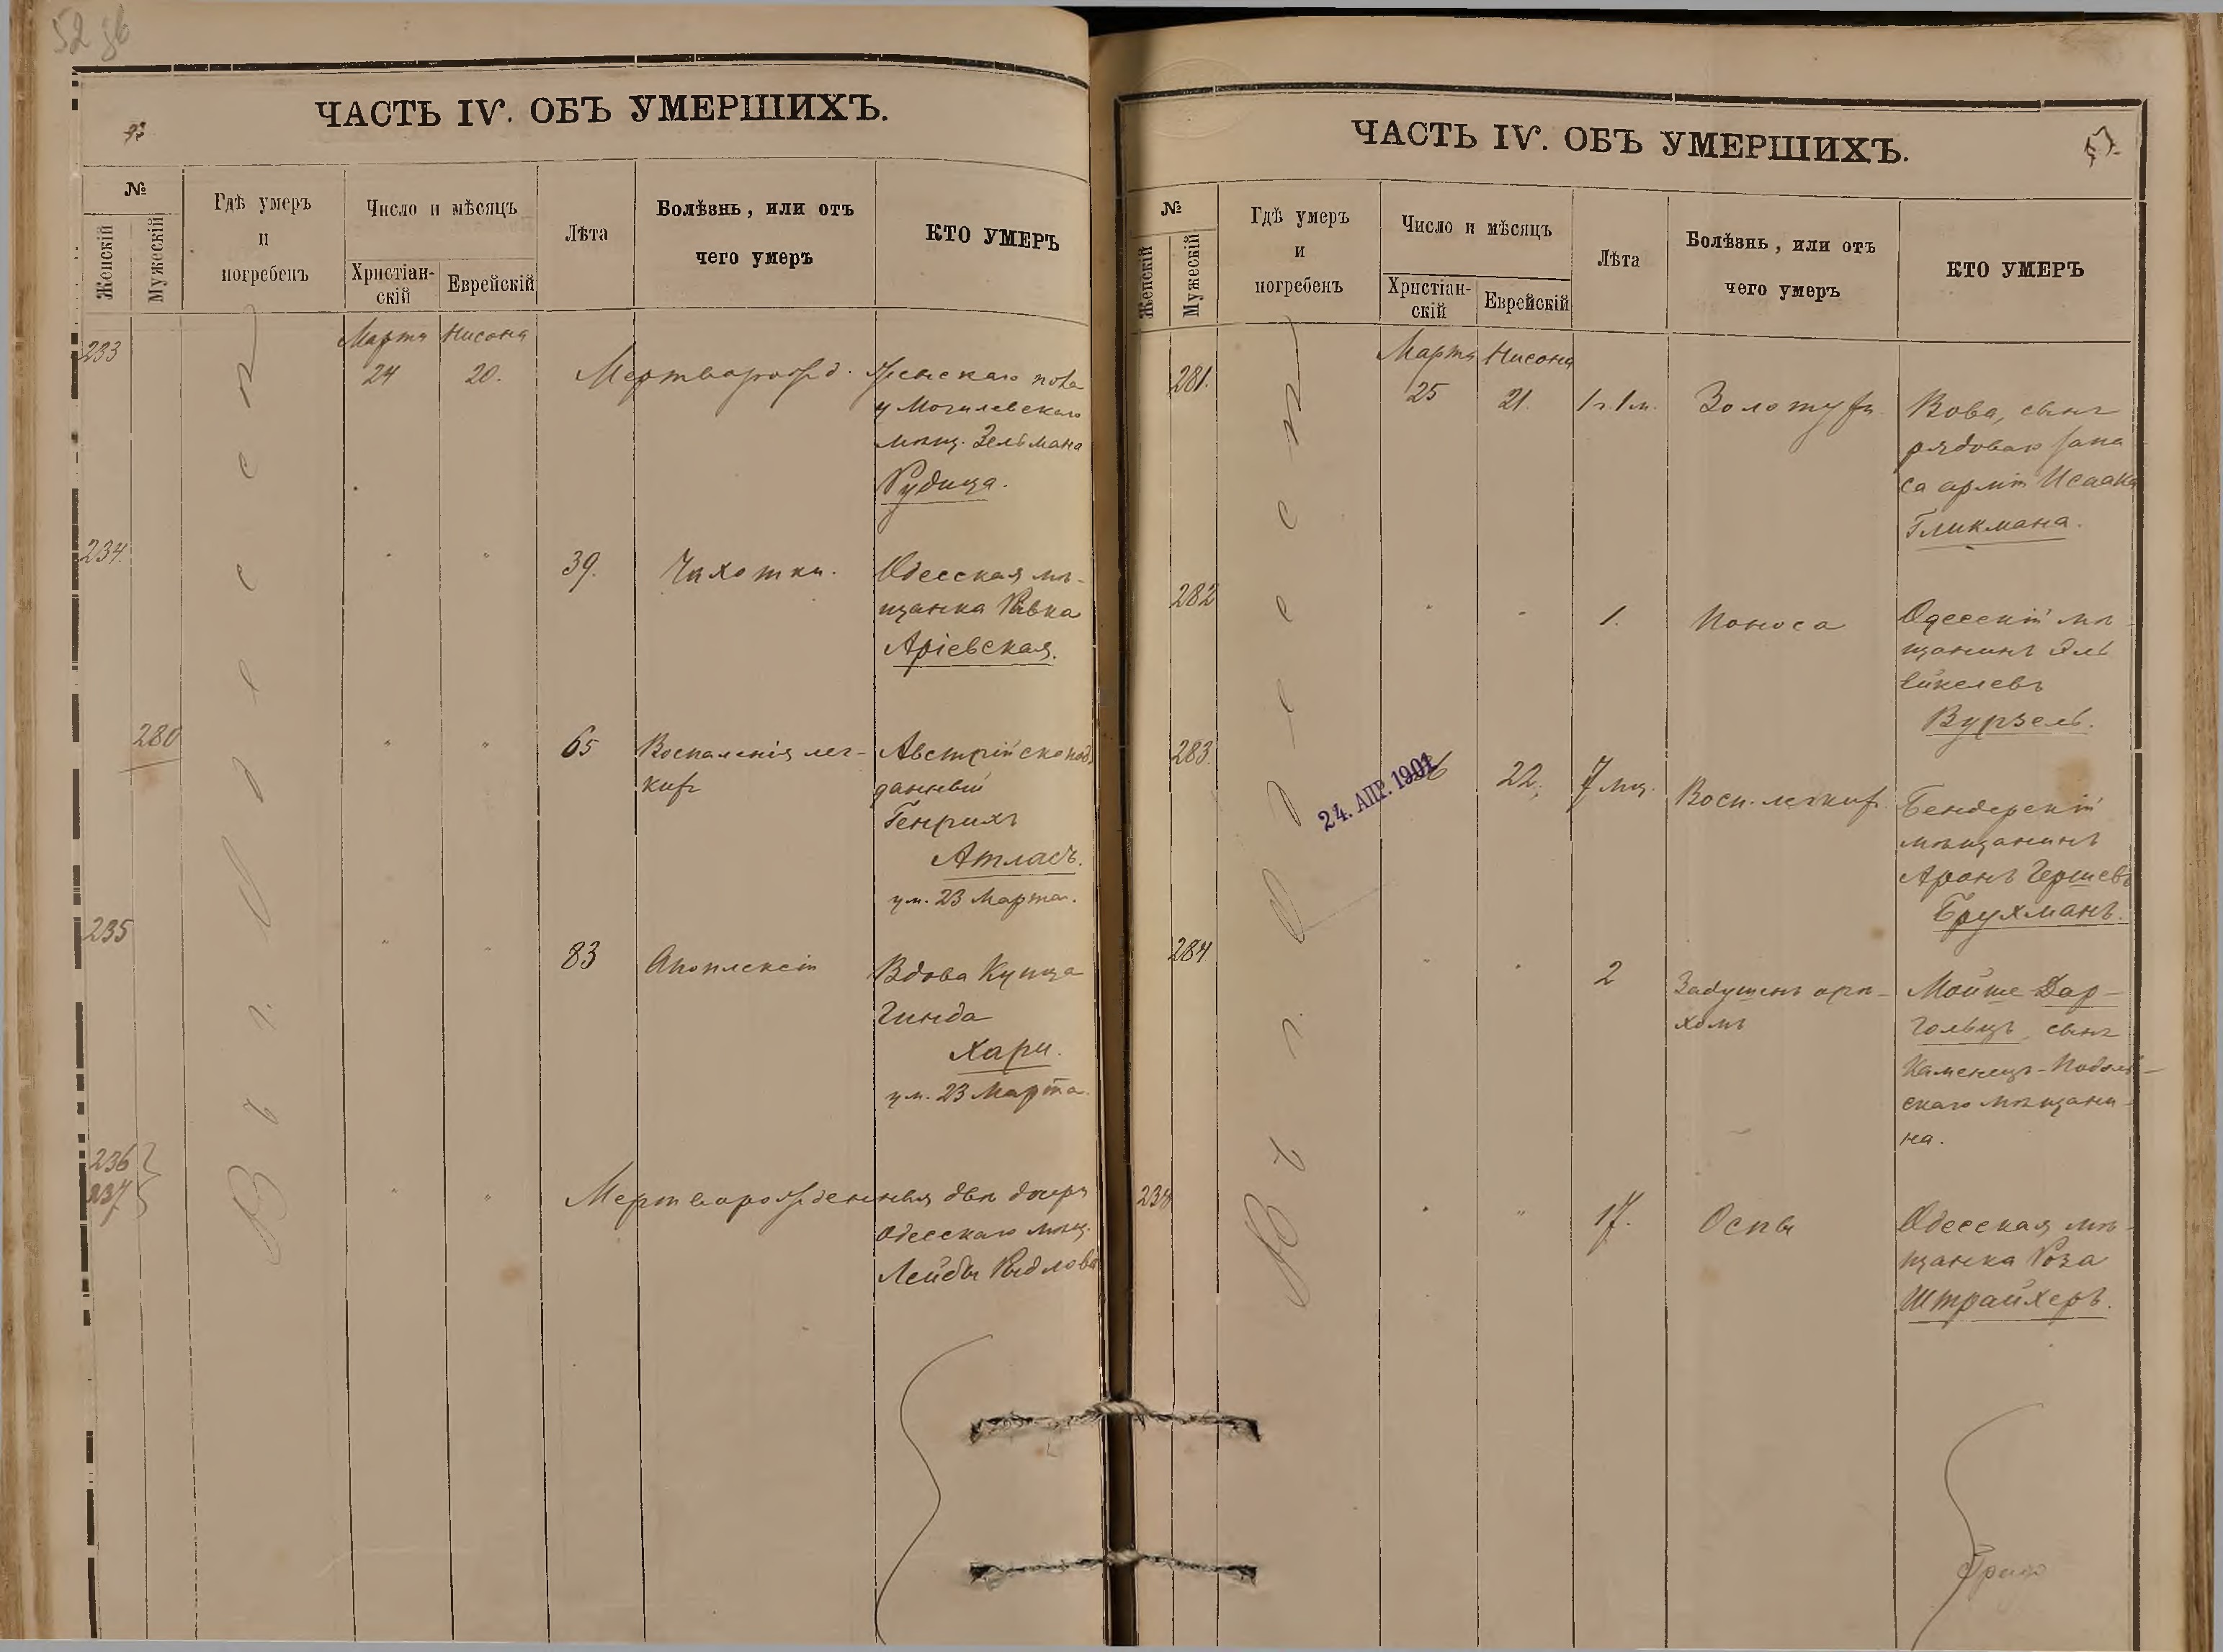 ЧАСТЬ IV. ОБЪ УМЕРШИХЪ.
№
Женскій
Мужескій
Гдѣ умеръ
и
погребенъ
Число и мѣсяцъ
Христіан-
скій
Еврейскій
Лѣта
Болѣзнь, или отъ
чего умеръ
КТО УМЕРЪ
Въ г. Одессѣ
233
Марта Нисона
24 20.
Мертворожд. женскаго пола
у Могилевскаго
мѣщ. Зельмана
Рудица.
234. " " 39. Чахотки. Одесская мѣ-
щанка Ривка
Аріевская.
280 " " 65 Воспаленія лег-
кихъ
Австрійско под
данный
Генрихъ
Атласъ.
ум. 23 Марта.
235 " " 83 Апоплексіи Вдова Купца
Гинда
Хари.
ум. 23 Марта.
236
237 " " Мертворожденныя двѣ дочери
Одесскаго мѣщ.
Лейбы
ЧАСТЬ IV. ОБЪ УМЕРШИХЪ.
№
Женскій
Мужескій
Гдѣ умеръ
и
погребенъ
Число и мѣсяцъ
Христіан-
скій
Еврейскій
Лѣта
Болѣзнь, или отъ
чего умеръ
КТО УМЕРЪ
Въ г. Одессѣ
Марта Нисона
281. 25 21. 1 г. 1 м. Золотухи Вова, сынъ
рядоваго запа
са арміи Исаака
Гликмана.
282 " " 1. Поноса Одесскій мѣ-
щанинъ Эль
Ейкелевъ
Вурзель.
283. 26 22. 7 мц. Восп. легкихъ Бендерскій
мѣщанинъ
Аронъ Гершевъ
Брухманъ.
24. АПР. 1901
284 " " 2 Задушенъ орѣ-
хомъ
Мойше Дар-
гольцъ, сынъ
Каменецъ-Подоль-
скаго мѣщани-
на.
238 " " 17. Оспы Одесская мѣ-
щанка Роза
Штрайхеръ.